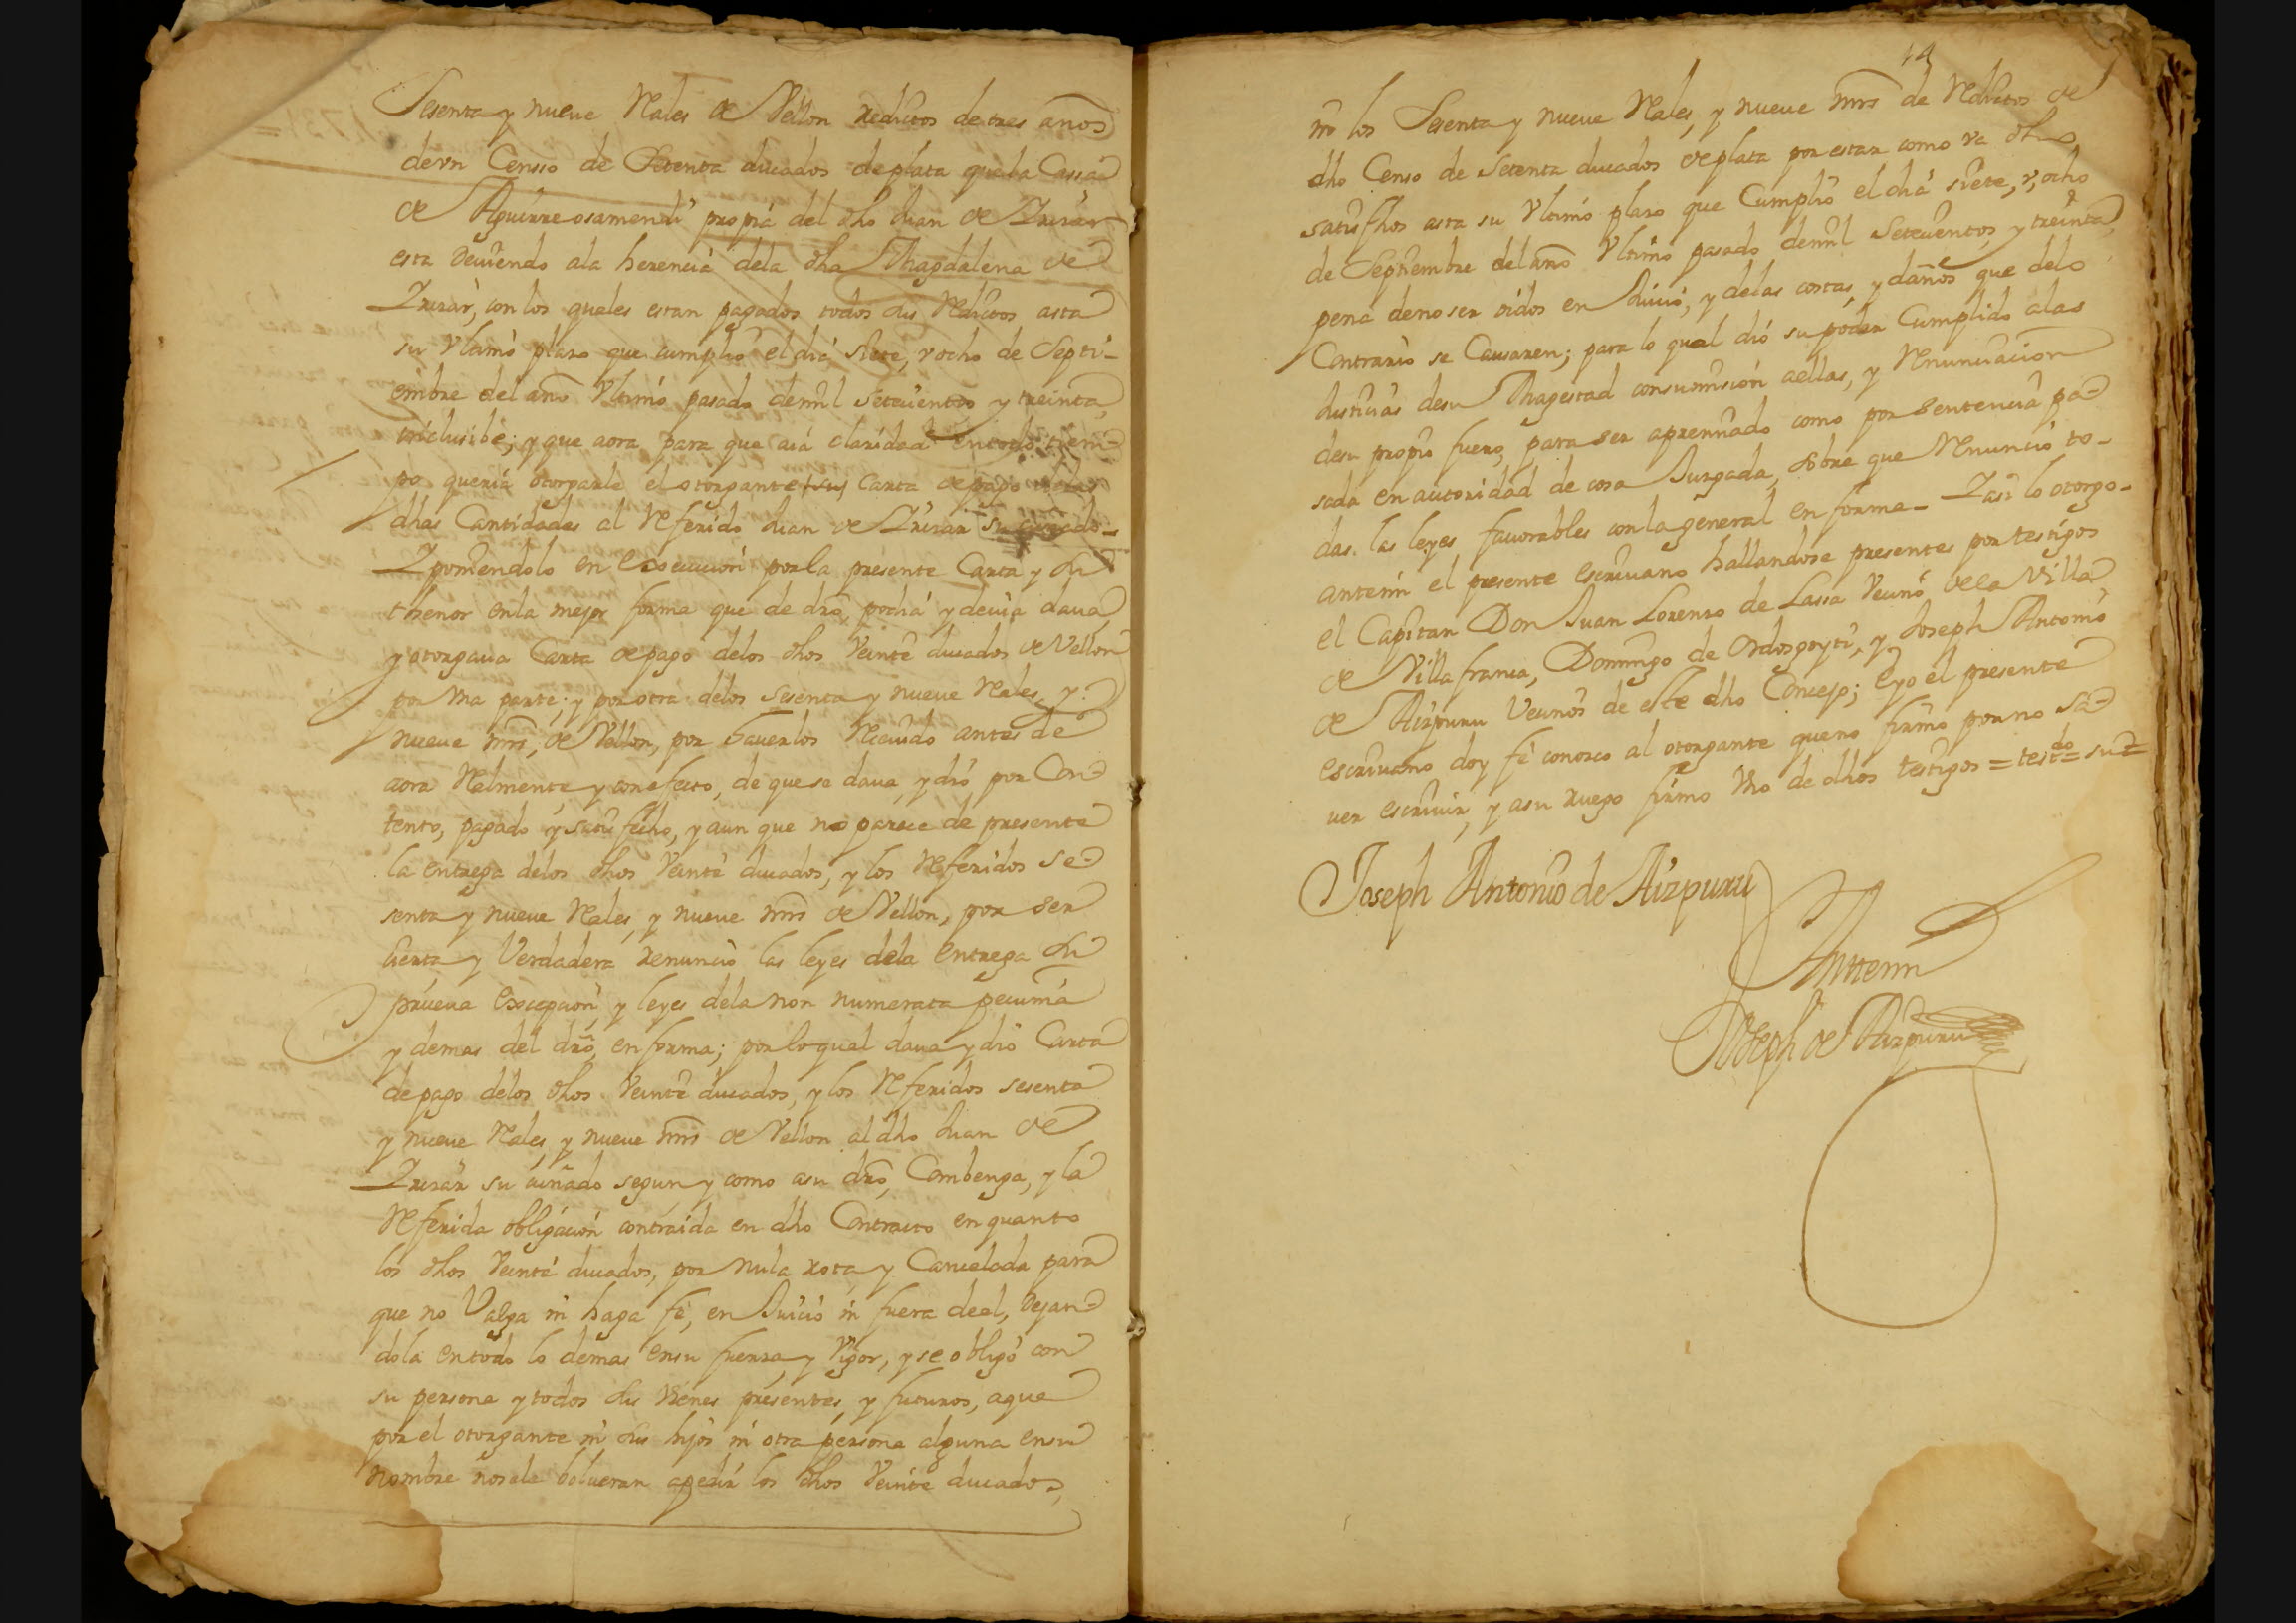 Sesenta y nueve Rales de Vellon reditos de tres años
de vn Censso de Setenta ducados de plata que la Cassa
de Aguirre osamendi propia del dho Juan de Yrizar
esta deuiendo ala herencia dela dha Magdalena de
Yrizar, con los quales estan pagados todos sus Reditos asta
su Vltimo plazo que cumplio el dia siete, v ocho de Septi-
embre del año Vltimo pasado de mil setecientos y treinta
inclusibe; y que aora para que aia claridad en todo tiem-
po queria otorgarle el otorgante su Carta de pago de las
dhas Cantidades al Referido Juan de Yrizar su cuñado-
Y poniendolo en Execucion por la presente Carta y su
thenor en la mejor forma que de dro, podia y deuia daua
y otorgaua Carta de pago delos dhos Veinte ducados de Vellon
por vna parte; y por otra delos sesenta y nueve Rales, y
nueve mrs, de Vellon, por hauerlos Reciuido antes de
aora Realmente y con efecto, de que se daua, y dió por Con-
tento, pagado y satisfecho, y aun que no parece de presente
la entrega delos dhos Veinte ducados, y los Referidos se-
senta y nueve Rales, y nueve mrs de Vellon, por ser
Cierta y Verdadera renunció las leyes dela entrega su
prueua Excepcion, y leyes dela non numerata pecunia
y demas del dro, en forma; por lo qual daua y dio Carta
de pago delos dhos Veinte ducados, y los Referidos sesenta
y nueve Rales, y nueve mrs de Vellon al dho Juan de
Yrizar su cuñado segun y como a su dro, Combenga, y la
Referida obligación contraida en dho Contracto en quanto
los dhos Veinte ducados, por nula rota y Cancelada para
que no Valga ni haga fé, en Juicio ni fuera de el, dejan-
dola en todo lo demas en su fuerza y Vigor, y se obligó con
su persona y todos sus Vienes presentes, y futuros, a que
por el otorgante ni sus hijos ni otra persona alguna en su
nombre no se le bolueran a pedir los dhos Veinte ducados,
14
ni los Sesenta y nueve Rales, y nueve mrs de Reditos de
dho Censo de Setenta ducados de plata por estar como va dho
satisfhos asta su Vltimo plazo que Cumplio el dia siete, v, ocho
de Septiembre del año Vltimo pasado de mil Setecientos y treinta,
pena de no ser oidos en Juicio, y delas costas, y daños que delo
Contrario se Causaren; para lo qual dió su poder Cumplido alas
Justicias de su Magestad con sumision a ellas, y Renunciacion
de su propio fuero, para ser apremiado como por sentencia pa-
sada en autoridad de cosa Juzgada, sobre que Renunció to-
das las leyes fauorables con la general en forma- Y asi lo otorgo-
ante mi el presente escriuano hallandose presentes por testigos
el Capitan Don Juan Lorenzo de Lassa Vecino de la Villa
de Villafranca, Domingo de Ordozgoyti, y Joseph Antonio
de Aizpuru Vecinos de este dho Concejo; E yo el presente
escriuano doy fé conozco al otorgante que no firmó por no sa-
uer escriuir, y a su ruego firmo Vno de dhos testigos = testdo = su =
Joseph Antonio de Aizpuru
Antemi
Joseph de Aizpuru